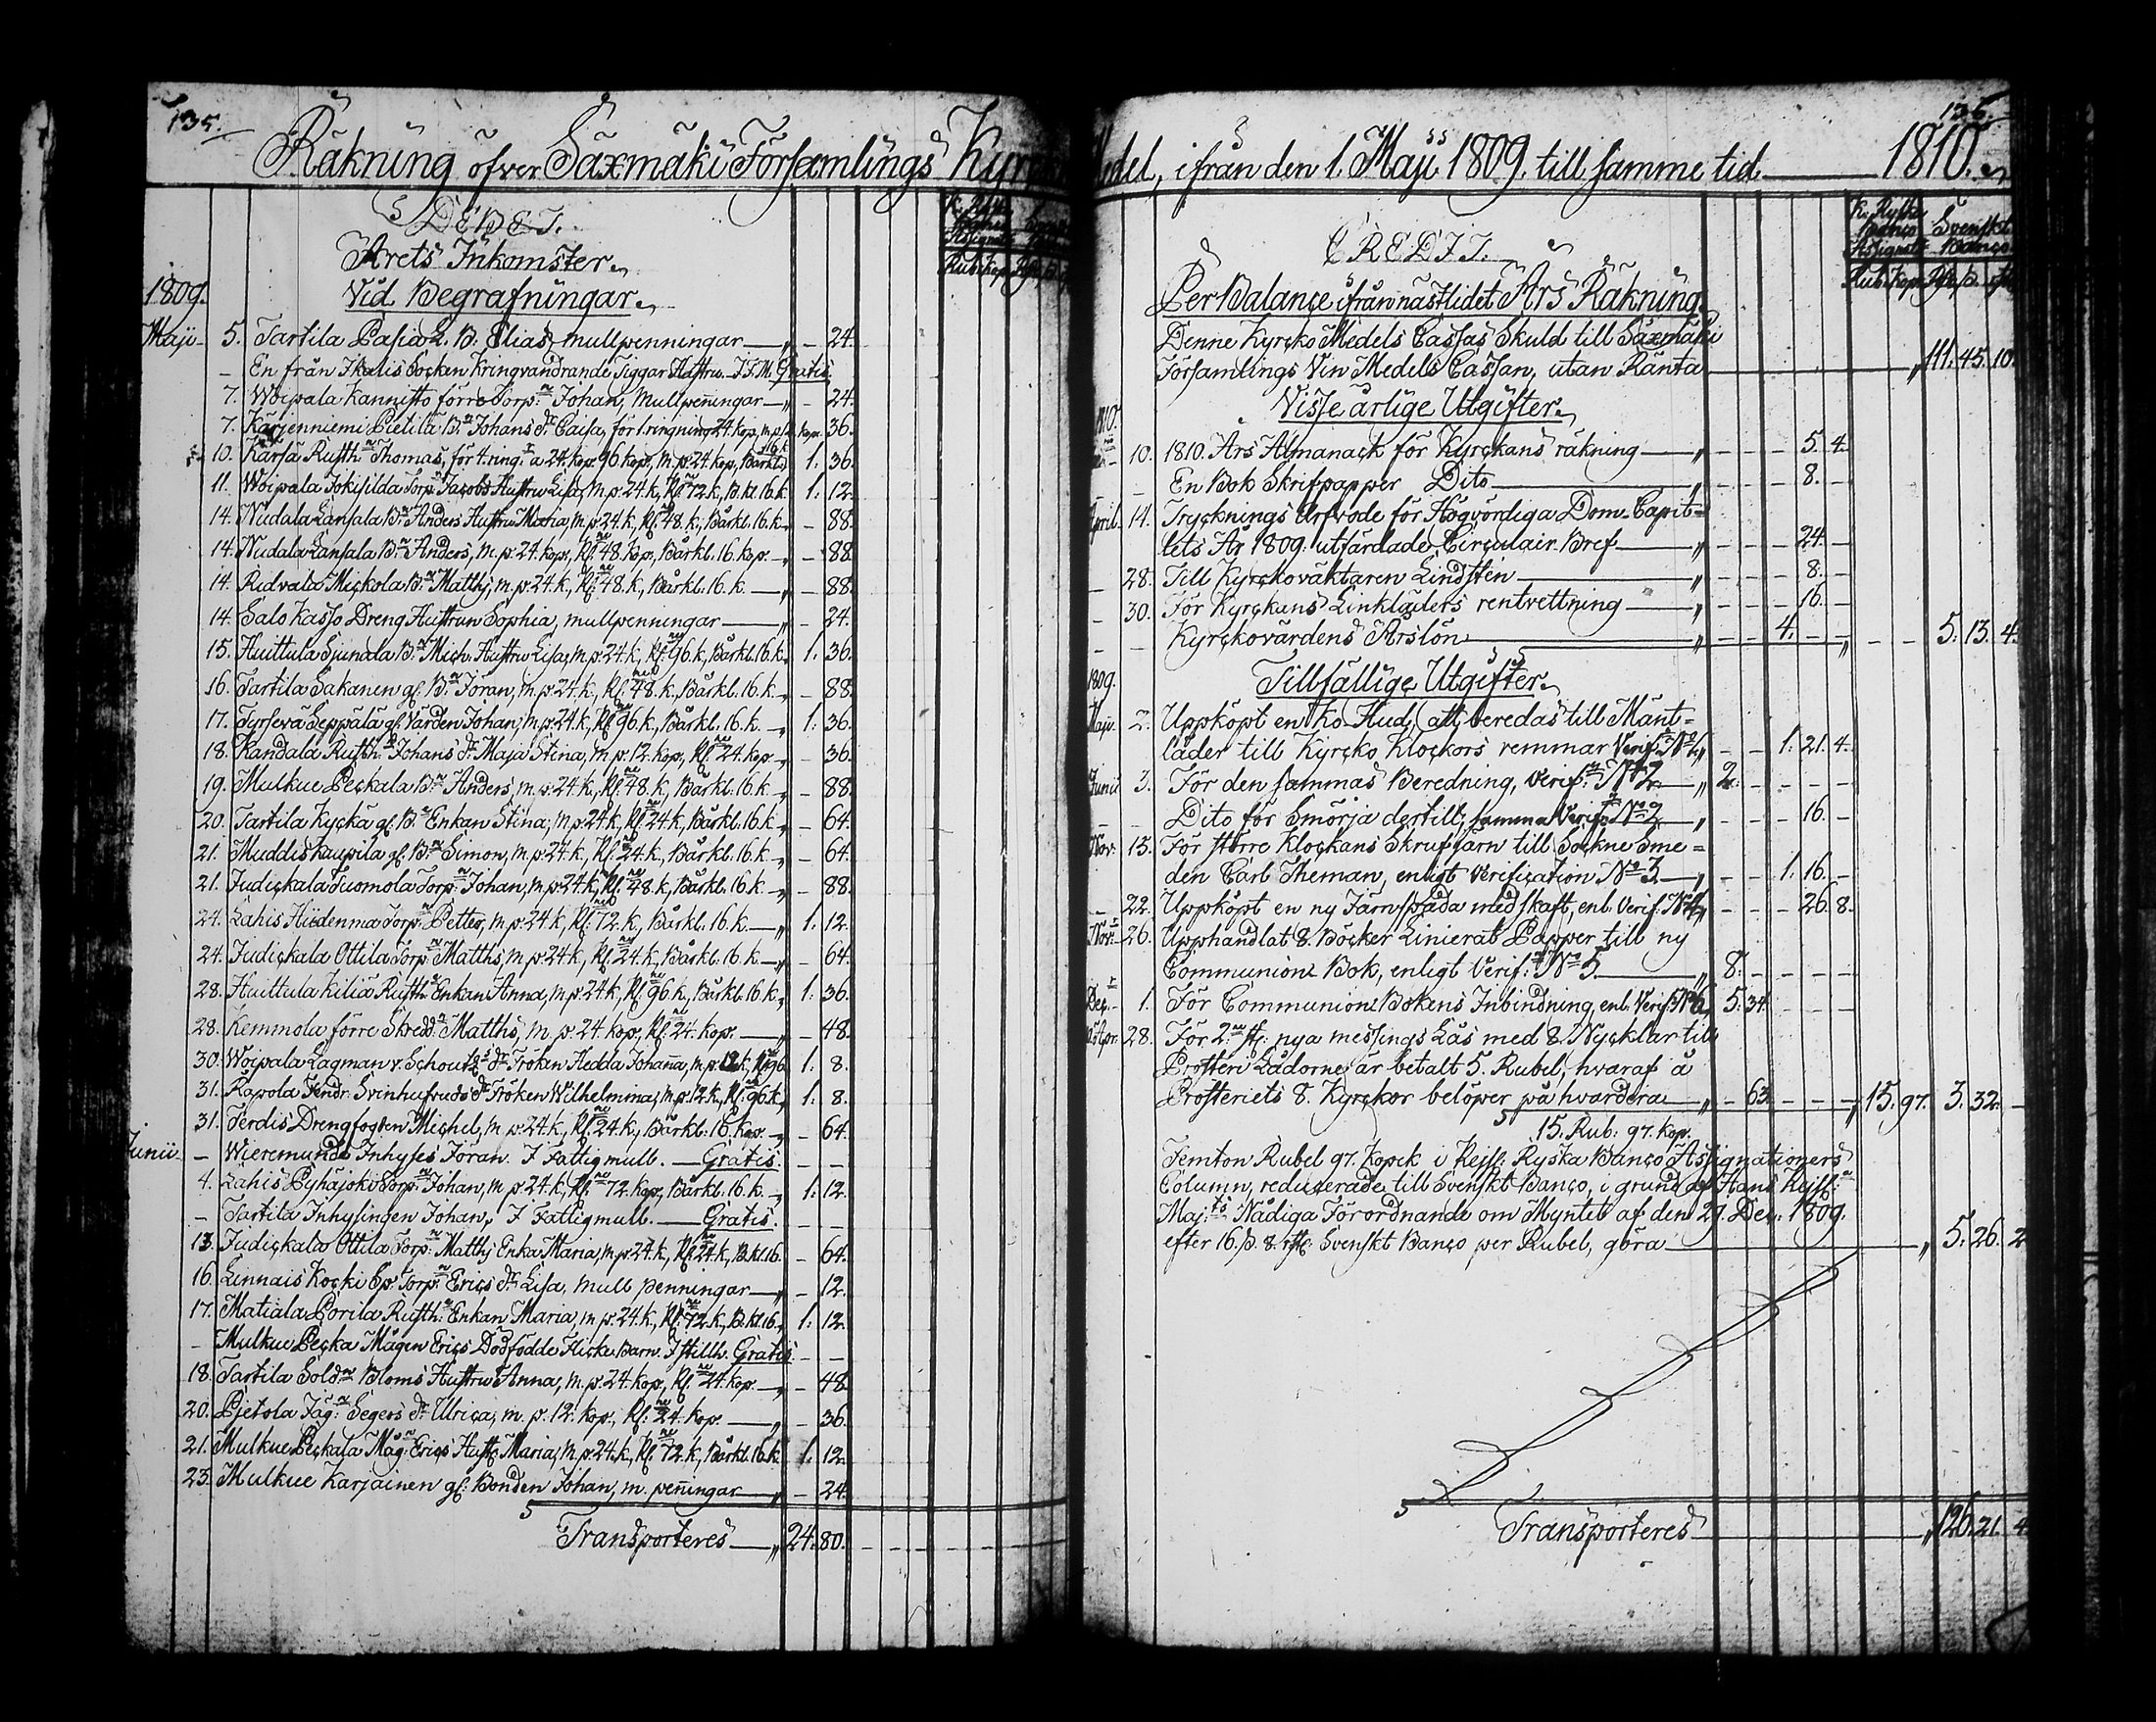 135.
Räkning öfver Säxmäki Församlings Kyrc
DEBET.
Årets Inkomster.
Rub. kop.
1809.
Vid Begrafningar.
Maji 5. Tartila Pasia L. B. Elias, mullpenningar — „ – 24.
– En från Ikalis Socken Kringvandrande Tiggar Hustru. I F. M. Gratis
7. Woipala Kannisto förre Torp:n Johan, Mullpenningar — „ – 24.
7. Karjenniemi Pietilä B:n Johans dr Caisa, för 1. ringning 24. kop. m. p. 12. kop. 36.
10. Karsa Rusth:n Thomas, för 4. ning:r a 24. kop. 96 kop., m. p. 24. kop., Bårkl. 16 k. 1. 36.
11. Woipala Jokisilda Torp:n Jacobs Hustru Lisa, m. p. 24. k., Kl:ne 72. k., B. kl. 16. k. 1. 12.
14. Nudala Lansala B:n Anders Hustru Maria, m. p. 24. k., Kl:ne 48. k., Bårkl. 16. k. – 88.
14. Nudala Lansala B:n Anders, m. p. 24. kop., Kl:ne 48. kop., Bårkl. 16. kop. „ – 88.
14. Ridvala Mickola B:n Matths, m. p. 24. k., Kl:ne 48. k., Bårkl. 16. k. — „ – 88.
14. Salo Kasso Dreng Hustrun Sophia, mullpenningar — „ – 24.
15. Huittula Sjunala B:n Mich. Hustru Lisa, m. p. 24. k., Kl:ne 96. k., Bårkl. 16. k. 1. 36.
16. Tartila Sakanen gl. B:n Jöran, m. p. 24. k., Kl:ne 48. k., Bårkl. 16. k. „ – 88.
17. Tyrsevä Seppälä gl. Värden Johan, m. p. 24. k., Kl:ne 96. k., Bårkl. 16. k. – „ 1. 36.
18. Kandala Rusth:n Johans dr Maja Stina, m. p. 12. kop., Kl:ne 24. kop. „ – 36.
19. Mulkue Peckala B:n Anders, m. p. 24. k., Kl:ne 48. k., Bårkl. 16. k. – „ – 88.
20. Tartila Kycka gl. B:n Enkan Stina, m. p. 24. k., Kl:ne 24. k., Bårkl. 16. k. „ – 64.
21. Muddis Kaupila gl. B:n Simon, m. p. 24. k., Kl:ne 24. k., Bårkl. 16. k. „ – 64.
21. Judickala Tuomola Torp:n Johan, m. p. 24. k., Kl:ne 48. k., Bårkl. 16. k. – „ – 88.
24. Lahis Hiidenma Torp:n Petter, m. p. 24. k., Kl:ne 72. k., Bårkl. 16. k. — „ 1. 12.
24. Judickala Ottila Torp:n Matths, m. p. 24. k., Kl:ne 24. k., Bårkl. 16. k. — „ – 64.
28. Huittula Kiliä Rusth:n Enkan Anna, m. p. 24. k., Kl:ne 96. k., Bårkl. 16. k. „ 1. 36.
28. Kemmola förre Skredd:n Matths, m. p. 24. kop., Kl:ne 24. kop. — „ – 48.
30. Woipala Lagman v. Schoultz's dr Fröken Hedda Johanna, m. p. 12. k., Kl:ne 96. 1. 8.
31. Rapola Fendr. Svinhufvuds dr Fröken Wilhelmina, m. p. 12. k., Kl:ne 96. k., 1. 8.
31. Terdis Drengfogden Michel, m. p. 24. k., Kl:ne 24. k., Bårkl. 16. kop. – „ – 64.
Junii – Wieremunde Inhyses Jöran. I Fattigmull. — Gratis. – –
4. Lahis Pyhäjoki Torp:n Johan, m. p. 24. k., Kl:ne 72. kop., Bårkl. 16. k. – „ 1. 12.
– Tartila Inhysingen Johan, I Fattigmull. — Gratis. – –
13. Judickala Ottila Torp:n Matths Enka Maria, m. p. 24. k., Kl:ne 24. k., B. kl. 16. – 64.
16. Linnais Kocki Torp:n Erics dr Lisa, mull penningar — „ – 12.
17. Matiala Porila Rusth:n Enkan Maria, m. p. 24. k., Kl:ne 72. k., B. kl. 16. „ 1. 12.
– Mulkue Pecka Mågen Erics Dödfödde Flicke Barn. I stillh. Gratis. – –
18. Tartila Sold:n Bloms Hustru Anna, m. p. 24. kop., Kl:ne 24. kop. — „ – 48.
20. Pietola Jäg:n Segers dr Ulrica, m. p. 12. kop., Kl:ne 24. kop. — „ – 36.
21. Mulkue Peckala Måg:n Erics Hust. Maria, m. p. 24. k., Kl:ne 72. k., Bårkl. 16. k. 1. 12.
23. Mulkue Karjainen gl. Bonden Johan, m. penningar — „ – 24.
Transporteres — „ 24. 80.
136.
Medel, ifrån den 1. Maji 1809. till samme tid. — 1810.
K. Ryska Banco Assignat. Svenskt Banco
Rub. kop.
CREDIT.
Per Balance ifrån nästlidet Års Räkning.
Denne Kyrcko Medels Cassas Skuld till Säxmäki
Församlings Vin Medels Cassan, utan Ränta — „ 111. 45. 10.
Visse årlige Utgifter.
1810.
10. 1810. Års Almanack för Kyrckans räkning — „ 5. 4.
– En Bok Skrifpapper Dito — „ 8. –
April. 14. Trycknings Arfvode för Högvördiga Dom-Capit=
lets År 1809. utfärdade Circulair Bref — „ 24. –
– 28. Till Kyrckoväktaren Lindsten — „ 8. –
– 30. För Kyrckans Linkläders rentvettning — „ 16. –
– – Kyrckovärdens Årslön — „ 4. – – „ 5. 13. 4.
1809.
Tillfällige Utgifter.
Maji. 2. Uppköpt en Ko-Hud, att beredas till Mänt=
läder till Kyrcko Klockors remmar Verif:n No 1. „ 1. 21. 4.
Junii 3. För den sammas Beredning, Verif:n No 2. — „ 2. –
– – Dito för Smörja dertill, samma Verif:n No 2. — „ 16. –
Nov. 15. För större Klockans Skrufjärn till Sockne Sme=
den Carl Theman, enligt Verification No 3. — „ 1. 16. –
– 22. Uppköpt en ny Järnspada med skaft, enl. Verif. No 4. „ 26. 8.
Nov. 26. Upphandlat 8. Böcker Linierat Papper till ny
Communions Bok, enligt Verif:n No 5. — „ 8. –
Dec. 1. För Communions Bokens Inbindning, enl. Verif:n No 6. 5. 34.
Apr. 28. För 2:ne st. nya messings Lås med 8. Nycklar till
Prosteri Lådorne, är betalt 5. Rubel, hvaraf å
Prosteriets 8. Kyrckor belöper på hvardera — „ – 63. „ 15. 97. 3. 32. –
15. Rub: 97. kop.
Femton Rubel 97. Kopek i Kejs. Ryska Banco Assignationers
Column, reducerade till Svenskt Banco, i grund af Hans Kejs:a
Maj:ts Nådiga Förordnande om Myntet af den 29. Dec. 1809.
efter 16. ß. 8. rst. Svenskt Banco per Rubel, göra — „ 5. 26. 2
Transporteres — „ 126. 21. 4